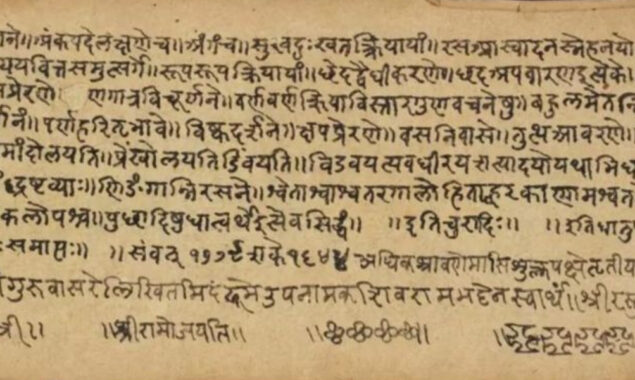 ॥अंकपदेलक्षणेच॥अंगच॥सुखदुःखतत्क्रियायां॥रसआस्वादनस्नेहनयो
व्ययवित्तसमुत्सर्गे॥रूपरूपक्रियायां॥छेदद्वैधीकरणे॥छदअपवारणइत्येके
प्रेरणे॥ गात्रविचूर्णने॥वर्णवर्णक्रियाविस्तारगुणवचनेषु॥बहुलमेतन्नि
र्शनं॥पर्णहरितभावे॥विष्कदर्शने॥क्षपप्रेरणे॥वसनिवासे॥तुत्थआवरणे॥
मांदोलयति॥प्रेंखोलयतिडिंबयति॥विडंबयत्यवधीरय
द्रष्टव्याः॥णिङंगान्निरसने॥श्वेताश्वाश्वतरगालोडिताह्वरकाणामश्वत
कलोपश्च॥पुच्छादिषुधात्वर्थइत्येवसिद्धं॥ ॥इतिचुरादिः॥ ॥इतिधातु
समाप्तः॥ ॥संवत् १७७९शाके१६४४ अधिकश्रावणेमासिशुक्लपक्षेतृतीय
गुरुवासरेलिखितमिदं उपनामकशिवरामभट्टेनस्वार्थं॥श्रीरस्
श्री॥ ॥श्रीरामोजयति॥